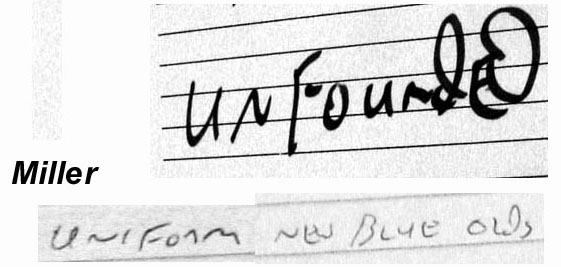 UNFOUNdED
Miller
UNIFORM NEW BLUE OldS